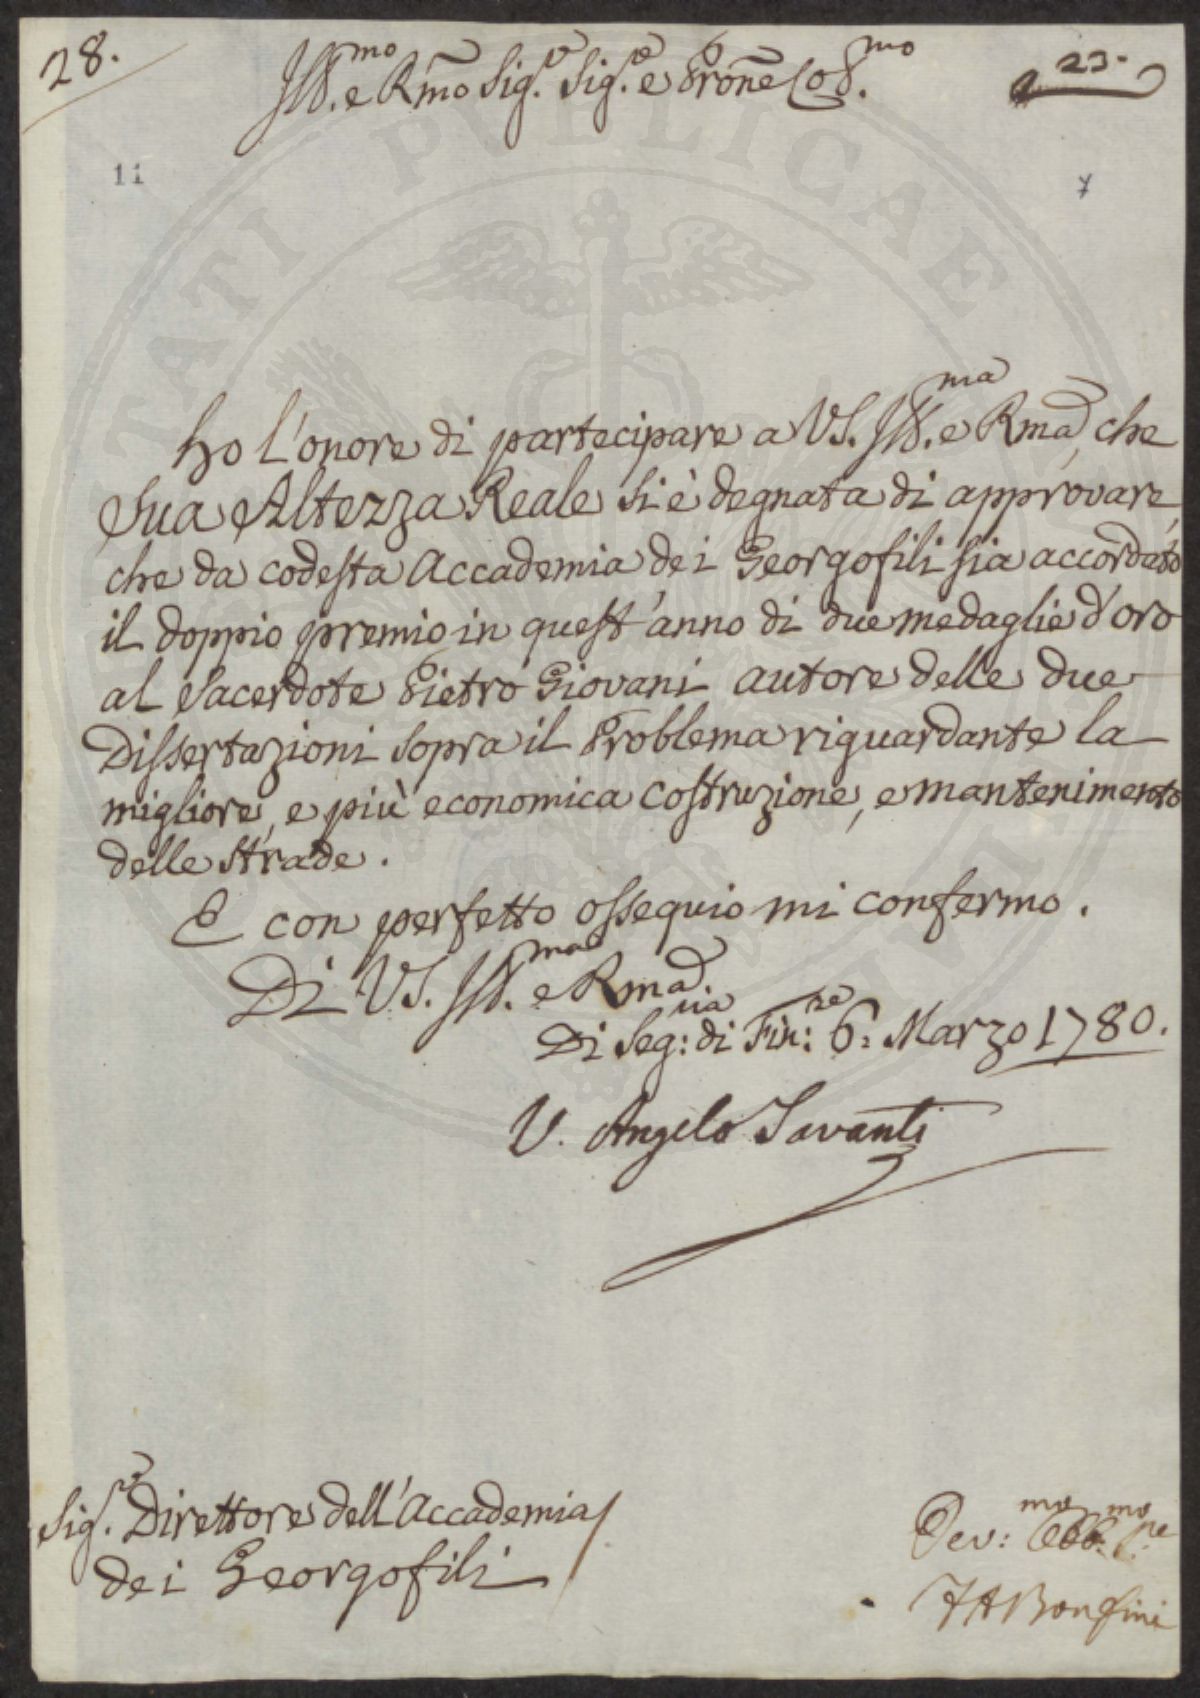 28.
Ill.mo e Rmo Sig.r Sig.re e Prone Col.mo
23.
11
7
Ho l'onore di partecipare a VS. Ill.ma e Rma, che
Sua Altezza Reale si è degnata di approvare,
che da codesta Accademia dei Georgofili sia accordato
il doppio premio in quest'anno di due medaglie d'oro
al Sacerdote Pietro Giovani autore delle due
Dissertazioni sopra il Problema riguardante la
migliore, e più economica costruzione, e mantenimento
delle strade.
E con perfetto ossequio mi confermo.
Di VS. Ill.ma e Rma
Di Seg:ria di Fin:ze 6: Marzo 1780.
V. Angelo Tavanti
Sig.r Direttore dell'Accademia
dei Georgofili
Dev:mo Obb:mo
F A Bonfini
PUBLICAE